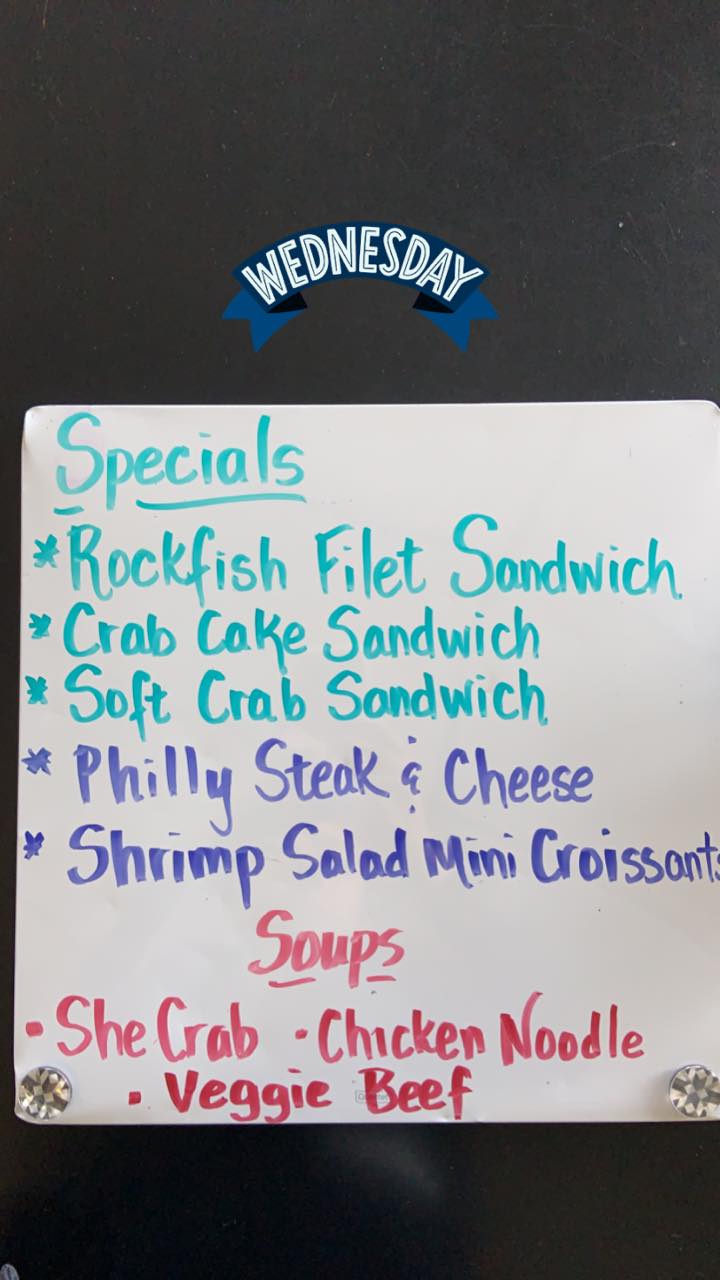 WEDNESDAY
Specials
* Rockfish Filet Sandwich
* Crab Cake Sandwich
* Soft Crab Sandwich
* Philly Steak & Cheese
* Shrimp Salad Mini Croissants
Soups
• She Crab • Chicken Noodle
• Veggie Beef